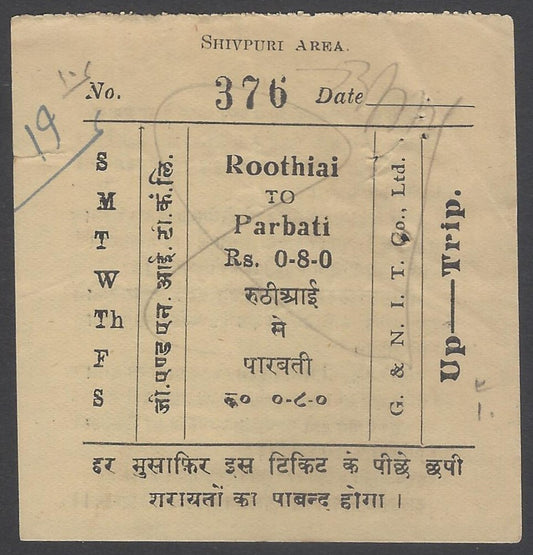 SHIVPURI AREA.
No. 376 Date
19
S
M
T
W
Th
F
S
जी. एण्ड एन. आई. टी. कं. लि.
Roothiai
TO
Parbati
Rs. 0-8-0
रुठीआई
से
पारबती
रू० ०-८-०
G. & N. I. T. Co., Ltd.
Up—Trip.
हर मुसाफ़िर इस टिकिट के पीछे छपी
शरायतों का पाबन्द होगा ।